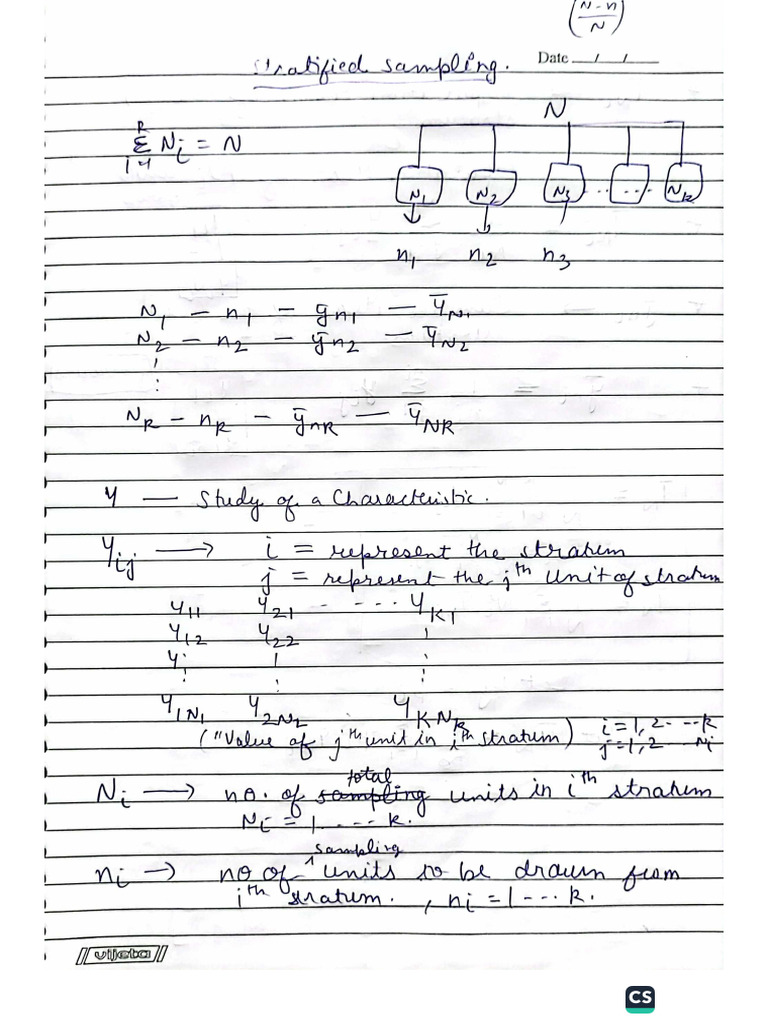 (N-n/N)
Stratified Sampling. Date __/__/__
k
Σ Ni = N
i=1
N
N1 N2 N3 ... ... Nk
n1 n2 n3
N1 — n1 — ȳn1 — ȳN1
N2 — n2 — ȳn2 — ȳN2
⋮
Nk — nk — ȳnk — ȳNk
y — Study of a Characteristic.
Yij → i = represent the stratum
j = represent the jth unit of stratum
Y11 Y21 - ... YK1
Y12 Y22
Y
Y1N1 Y2N2 YKNk
("Value of jth unit in ith stratum) i=1,2...k
j=1,2 ... Ni
Ni → no. of sampling total units in ith stratum
Ni = 1 .... k.
ni → no of sampling units to be drawn from
ith stratum. , ni = 1 ... k.
vijeta
CS